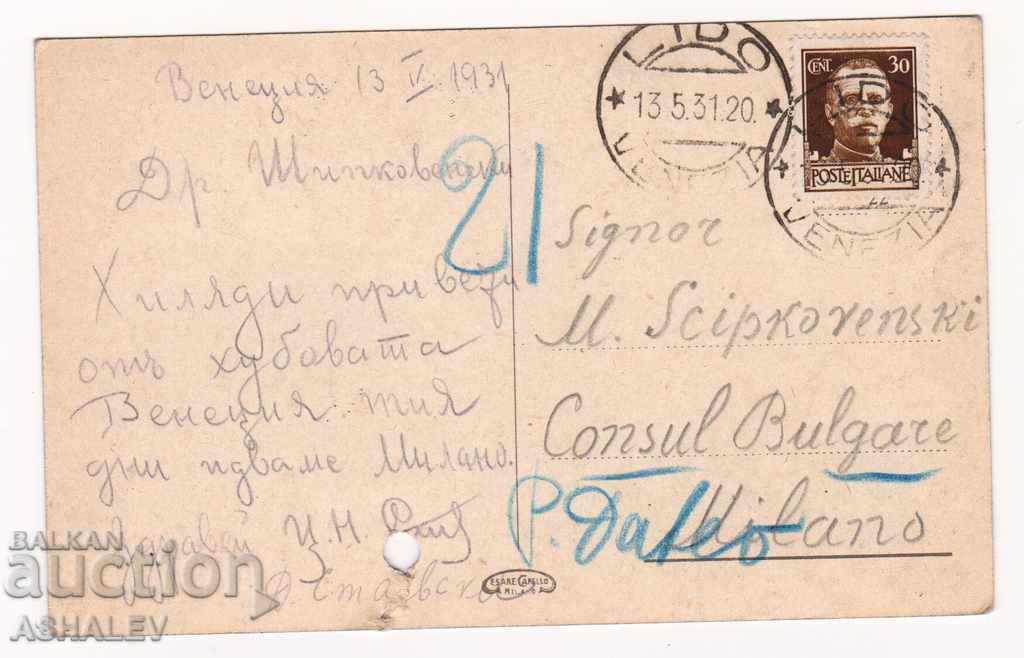 Венеция 13 V 1931
Др. Шипковенски
Хиляди привети
отъ хубовата
Венеция тия
дни идваме Милано.
Здравей Ц. Н.
21
LIDO
* 13.5.31.20. *
VENEZIA
CENT. 30
POSTE ITALIANE
LIDO
VENEZIA
Signor
M. Scipkovenski
Consul Bulgare
Milano
P.
CESARE CAPELLO
MILANO
BALKAN
auction
ASHALEV